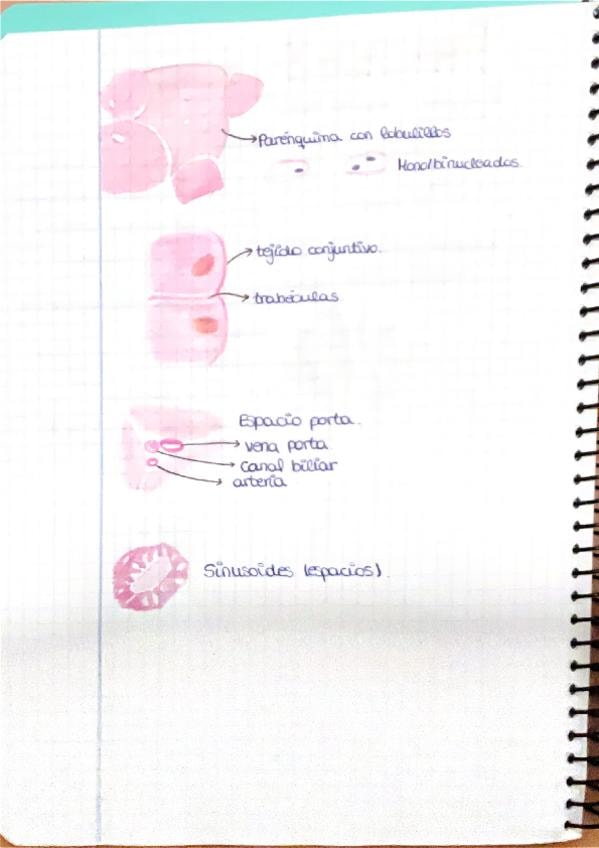 Parénquima con lobulillos
Mono/binucleados.
tejido conjuntivo.
trabéculas
Espacio porta.
vena porta
canal biliar
arteria
Sinusoides (espacios).